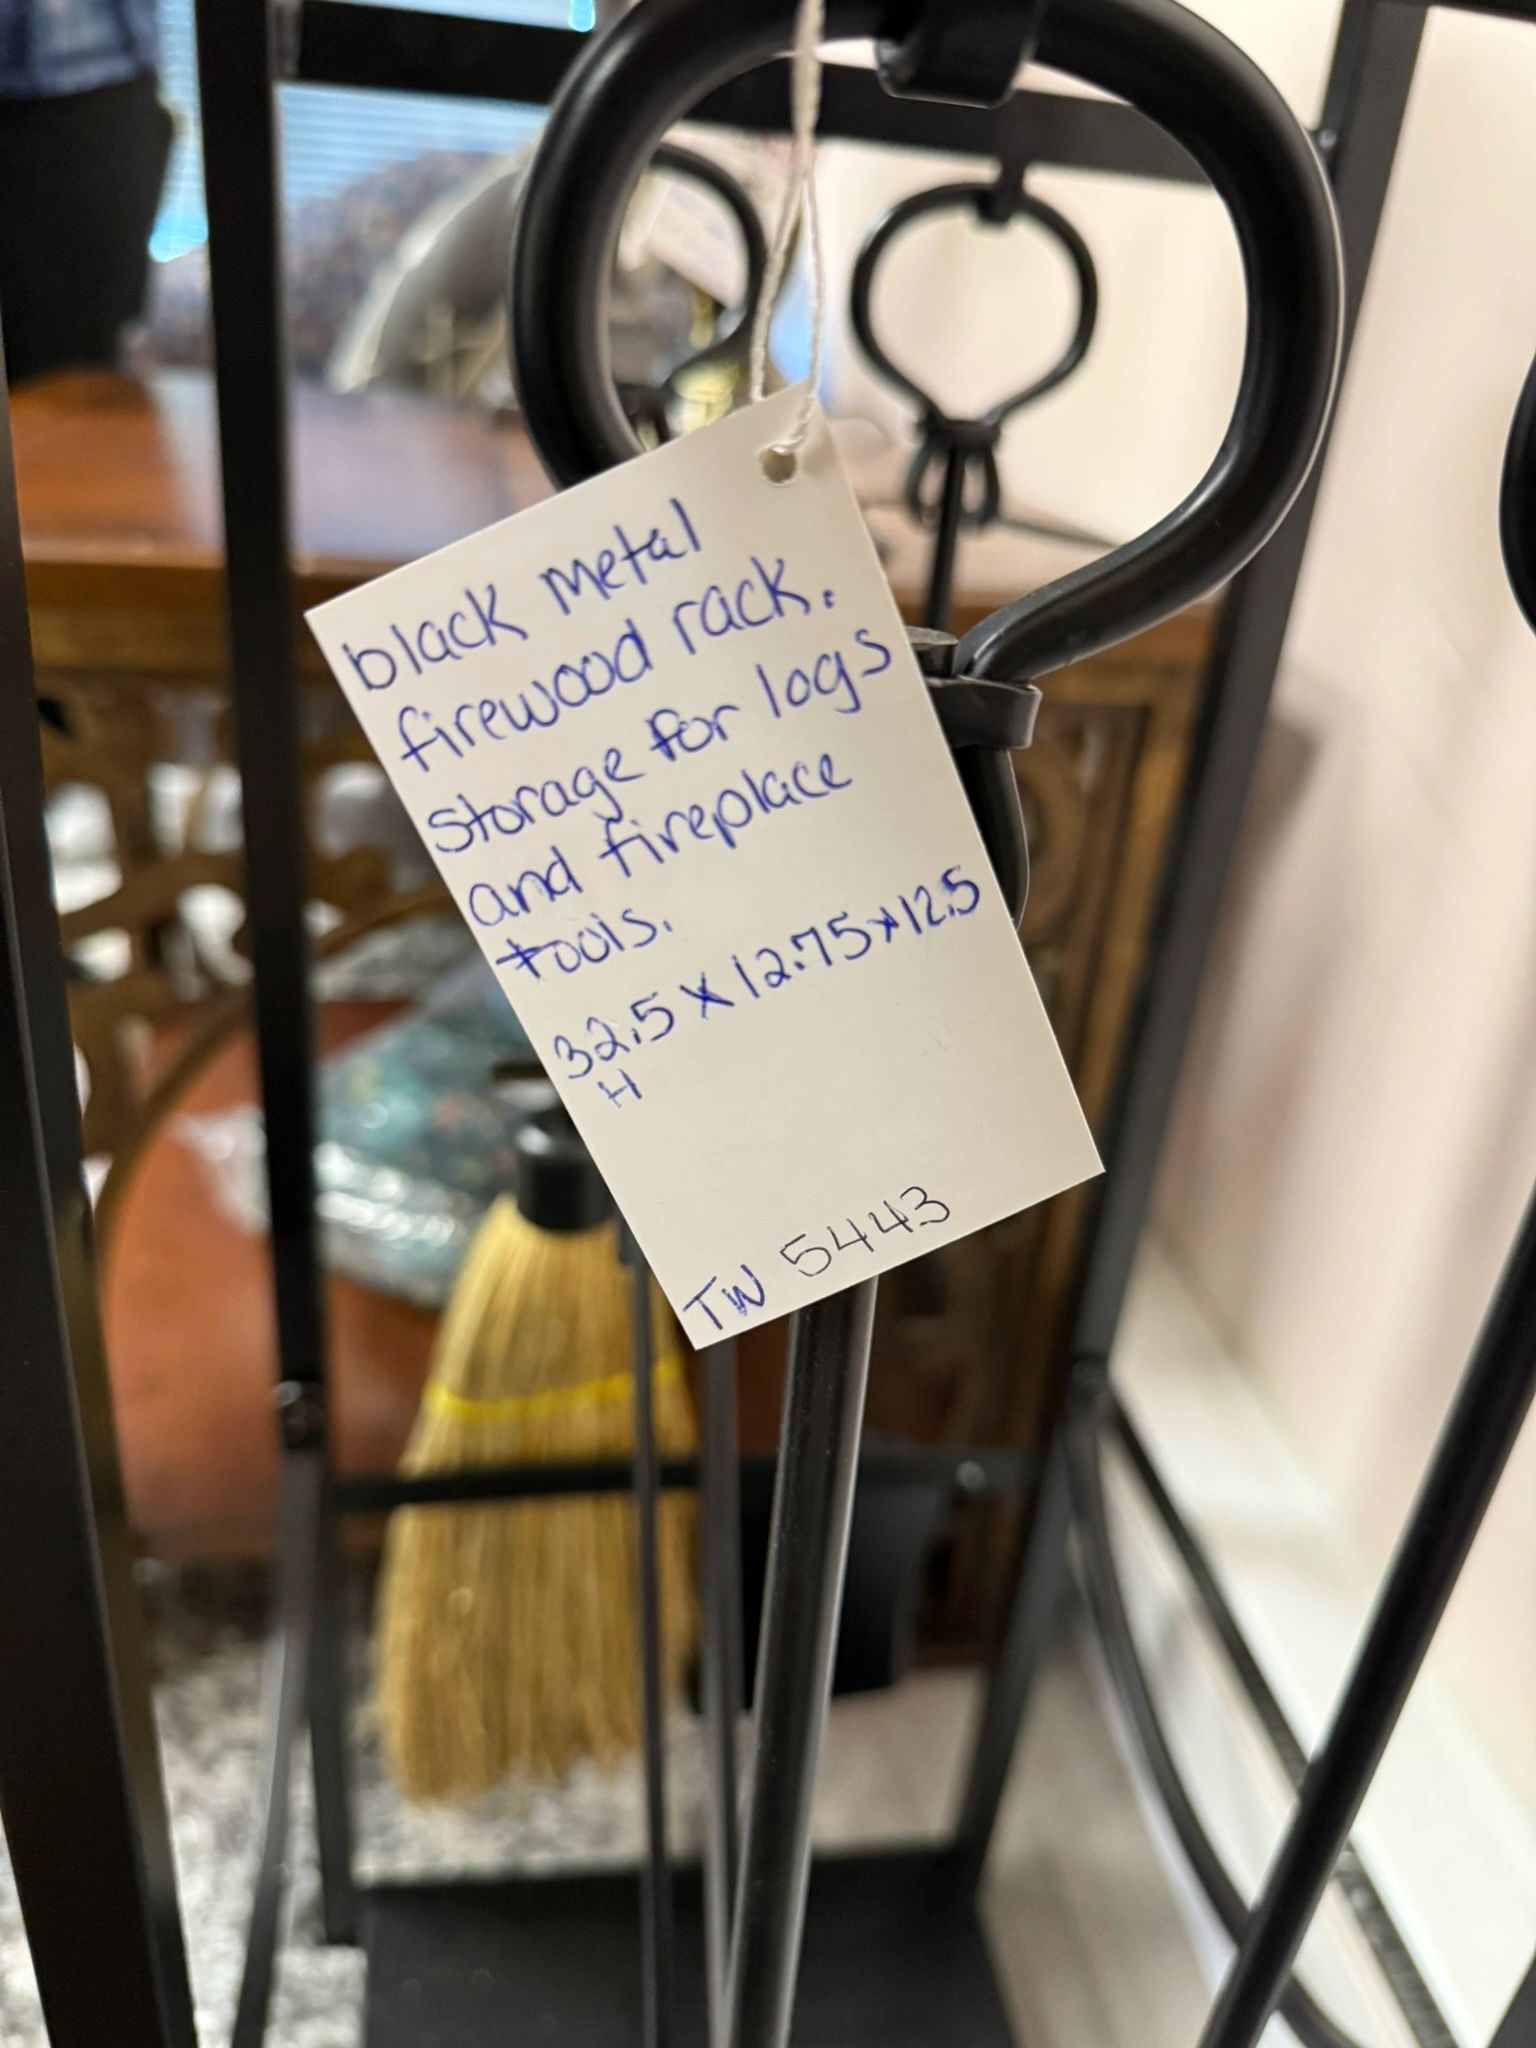 black metal
firewood rack.
storage for logs
and fireplace
tools.
32.5 x 12.75 x 12.5
H
TW 5443